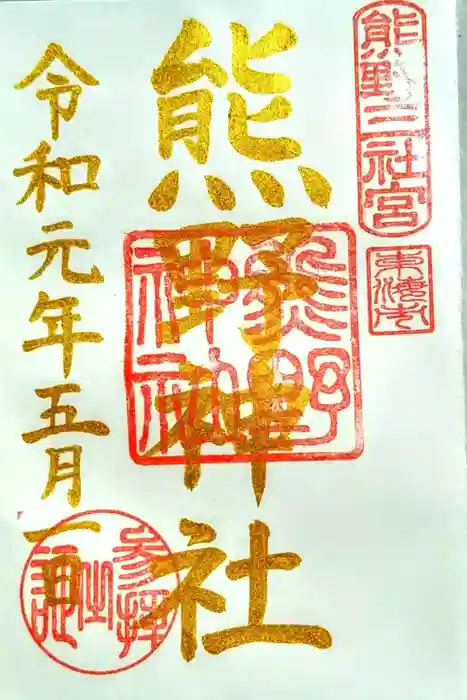 熊野三社宮
熊野神社
熊野神社
令和元年五月一日
参拝
記